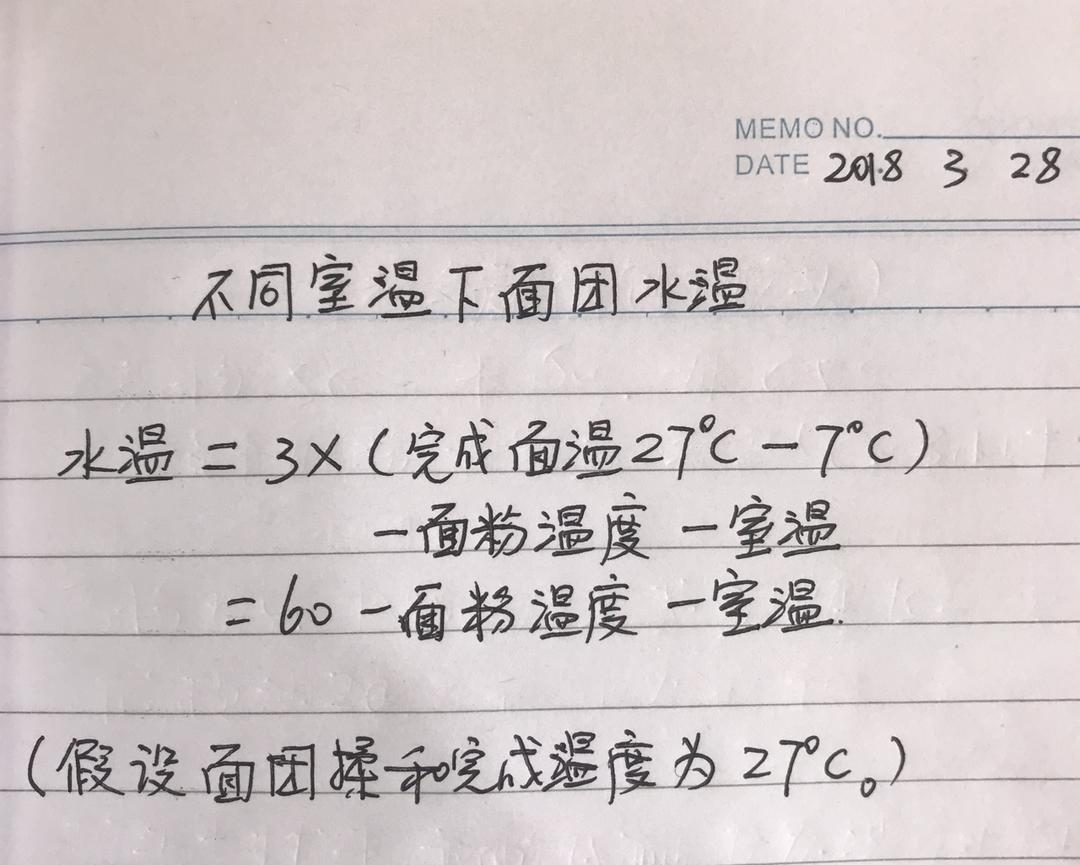 MEMO NO.
DATE 2018 3 28
不同室温下面团水温
水温 = 3×(完成面温27°C - 7°C)
-面粉温度 -室温
= 60 -面粉温度 -室温.
(假设面团揉和完成温度为27°C。)